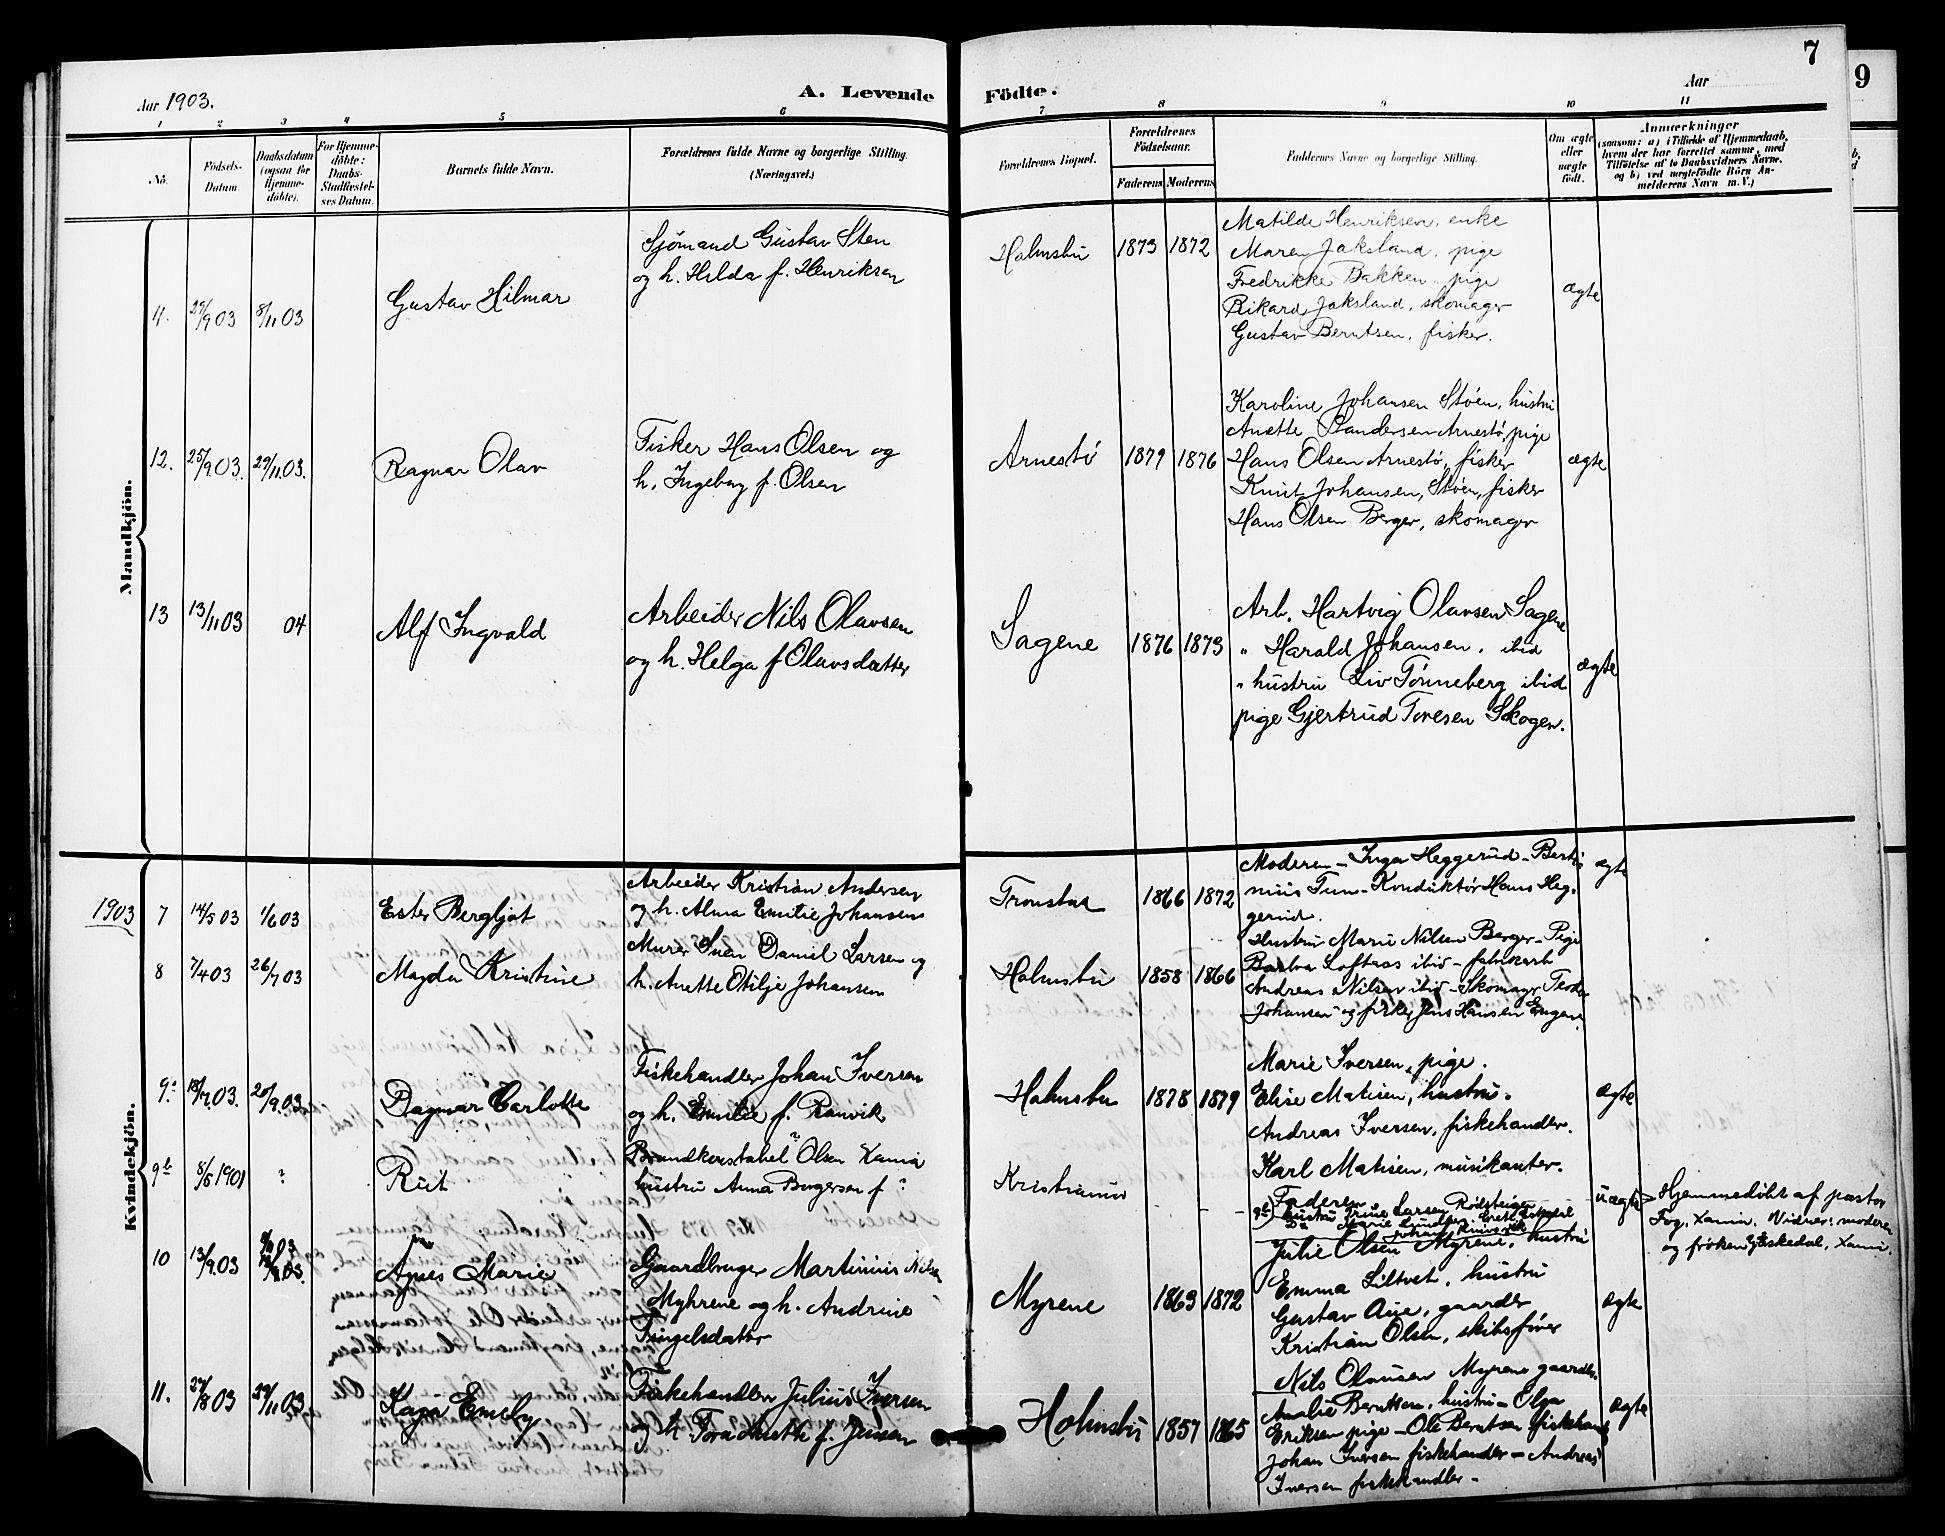 7
9
Aar 1903.
A. Levende
Födte.
Aar
1 2 3 4 5 6 7 8 9 10 11
No.
Födsels-
Datum.
Daabsdatum
(ogsaa for
Hjemme-
döbte).
For Hjemme-
döbte:
Daabs-
Stadfæstel-
ses Datum.
Barnets fulde Navn.
Forældrenes fulde Navne og borgerlige Stilling.
(Næringsvei.)
Forældrenes Bopæl.
Forældrenes
Födselsaar.
Faderens
Moderens
Faddernes Navne og borgerlige Stilling.
Om ægte
eller
uægte
födt.
Anmærkninger
(saasom: a) i Tilfælde af Hjemmedaab,
hvem der har forrettet samme, med
Tilföielse af to Daabsvidners Navne.
og b) ved uægtefödte Börn An-
melderens Navn m. V.)
Mandkjön.
11. 29/9 03 8/11 03
Gustav Hilmar
Sjömand Gustav Sten
og h. Hilda f. Henriksen
Holmsbu 1873 1872
Matilde Henriksen, enke
Maren Jaksland, pige
Fredrikke Bakken, pige
Rikard Jaksland, skomager
Gustav Berntsen, fisker.
ægte
12. 25/9 03. 29/11 03.
Ragnar Olav
Fisker Hans Olsen og
h. Ingeborg f. Olsen
Arnestö 1879 1876
Karoline Johansen Stöen, hustru
Anette Randersen Arnestö, pige
Hans Olsen Arnestö, fisker
Knut Johansen, Stöen, fisker
Hans Olsen Berger, skomager
ægte
13 13/11 03 04
Alf Ingvald
Arbeider Nils Olavsen
og h. Helga f Olavsdatter
Sagene 1876 1873
Arb. Hartvig Olavsen Sagene
" Harald Johansen, ibid
" hustru Liv Tönneberg ibid
pige Gjertrud Toresen Skogen.
ægte
Kvindekjön.
1903 7 14/5 03 1/6 03
Ester Bergljot
Arbeider Kristian Andersen
og h. Alma Emilie Johansen
Tronstad 1866 1872
Moderen – Inga Heggerud –
Konduktör Hans Heg-
gerud.
ægte
8 7/4 03 26/7 03
Magda Kristine
Murer Sven Daniel Larsen og
h. Anette Otilje Johansen
Holmsbu 1858 1866
Hustru Marie Nilsen Berger – Pige
Loftaas ibid – fabrikarb
Andreas Nilsen ibid – Skomager
Johansen og fisker Jens Hansen
9.a 20/9. 03.
Dagmar Carlotte
Fiskehandler Johan Iversen
og h. Emilie f. Ramvik
Holmsbu 1878 1879
Marie Iversen, pige.
Elise Matisen, hustru.
Andreas Iversen, fiskehandler.
Karl Matisen, musikanter.
ægte
9b 8/6 1901 ?
Rut
Brandkonstabel ? Olsen Xania
hustru Anna Borgersen f ?
Kristiania - -
Faderen
uægte
Hjemmedöbt af pastor
Fog, Xania. Vidner: moderen
og fröken Xania.
10 13/9. 03
Agnes Marie
Gaardbruger Martinius Nilsen
Myhrene og h. Andrine
Tingelsdatter
Myrene 1863 1872
Julie Olsen Myrene, hustru
Emma Siltvet, hustru
Gustav Aue, gaardbr
Kristian Olsen, skibsförer
Nils Olausen Myrene gaardbr.
ægte
11. 27/8 03 29/11 03
Kaja Emely
Fiskehandler Julius Iversen
og h Tora Anette f. Jensen
Holmsbu 1857 1865
Amalie Berntsen, hustru – Olga
Eriksen pige – Ole Berntsen fiskehand
Johan Iversen fiskehandler – Andreas
Iversen fiskehandler –
ægte